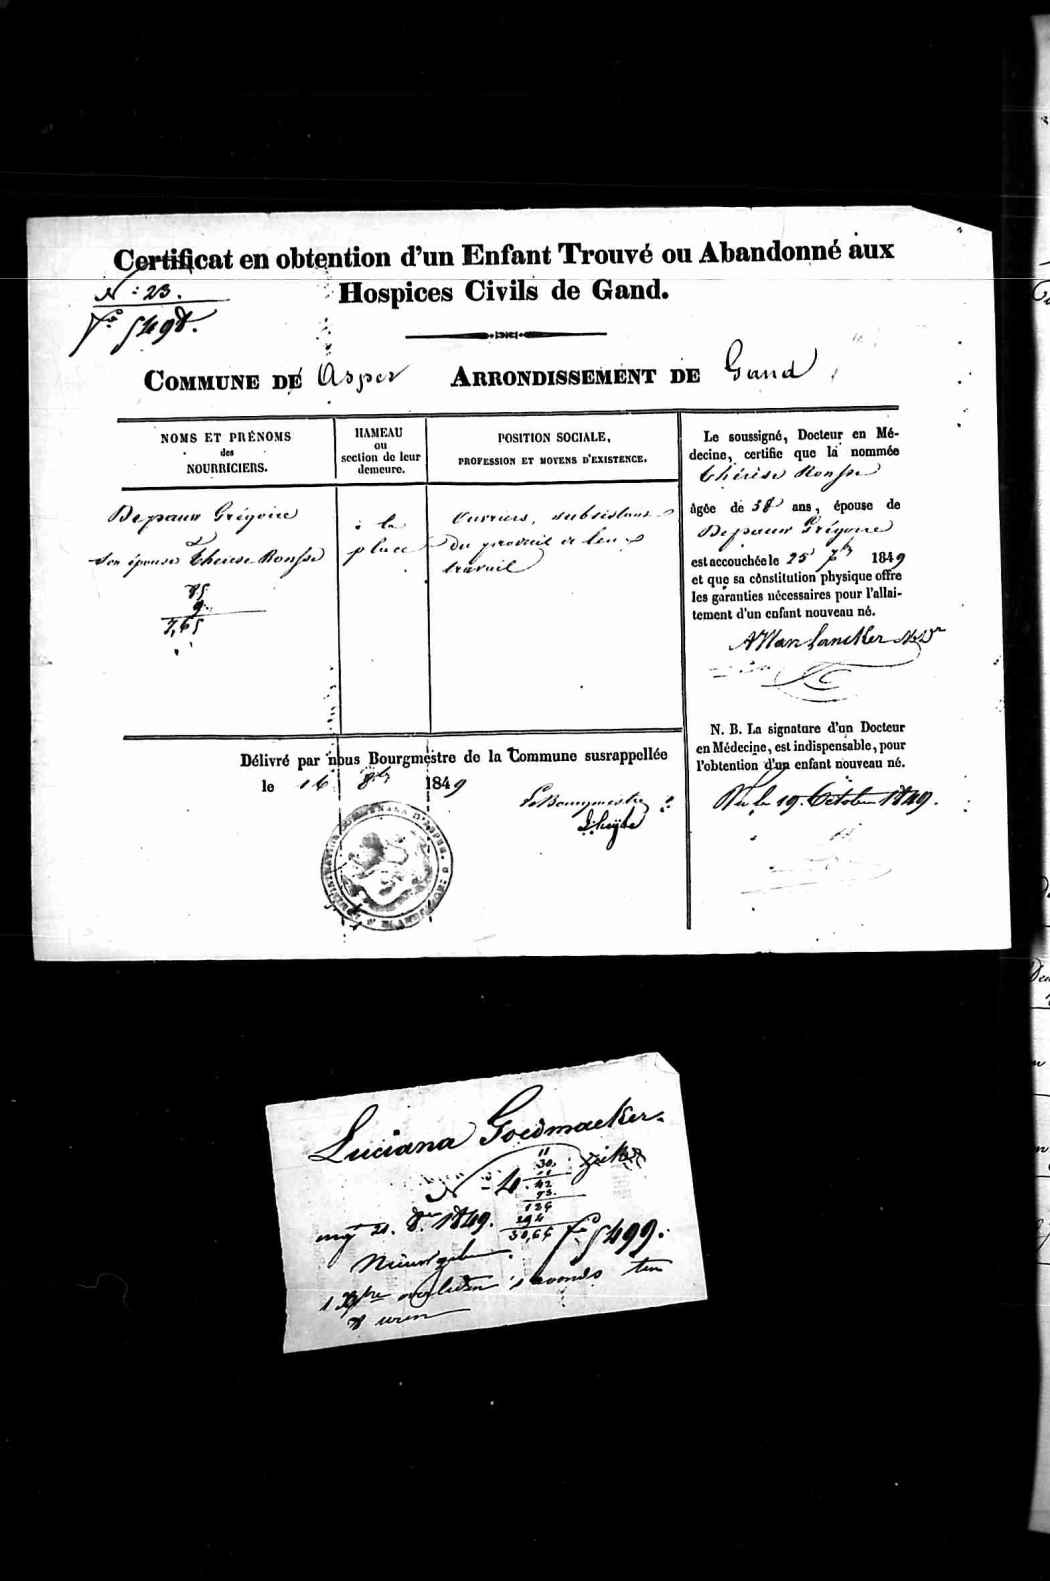 Certificat en obtention d'un Enfant Trouvé ou Abandonné aux
Hospices Civils de Gand.
N: 23.
fo 5498.
COMMUNE DE Asper ARRONDISSEMENT DE Gand
NOMS ET PRÉNOMS
des
NOURRICIERS.
HAMEAU
ou
section de leur
demeure.
POSITION SOCIALE,
PROFESSION ET MOYENS D'EXISTENCE.
Depauw Grégoire
&
Son épouse Therese Ronsse
85
9
7,65
à la
place
Ouvriers, subsistans
du produit de leur
travail
Le soussigné, Docteur en Mé-
decine, certifie que la nommée
Thérèse Ronsse
âgée de 38 ans, épouse de
Depauw Grégoire
est accouchée le 25 7bre 1849
et que sa constitution physique offre
les garanties nécessaires pour l'allai-
tement d'un enfant nouveau né.
N. B. La signature d'un Docteur
en Médecine, est indispensable, pour
l'obtention d'un enfant nouveau né.
Vu le 19 October 1849.
Délivré par nous Bourgmestre de la Commune susrappellée
le 16 8bre 1849
Le Bourgmestre
Luciana Goedmaeker.
N 4
11
30.
11
42
73.
126
294
30,66
ziek
21. 8re 1849.
fo 5499.
Nieuwgeb
1 Xbre overleden 's avonds ten
8 uren